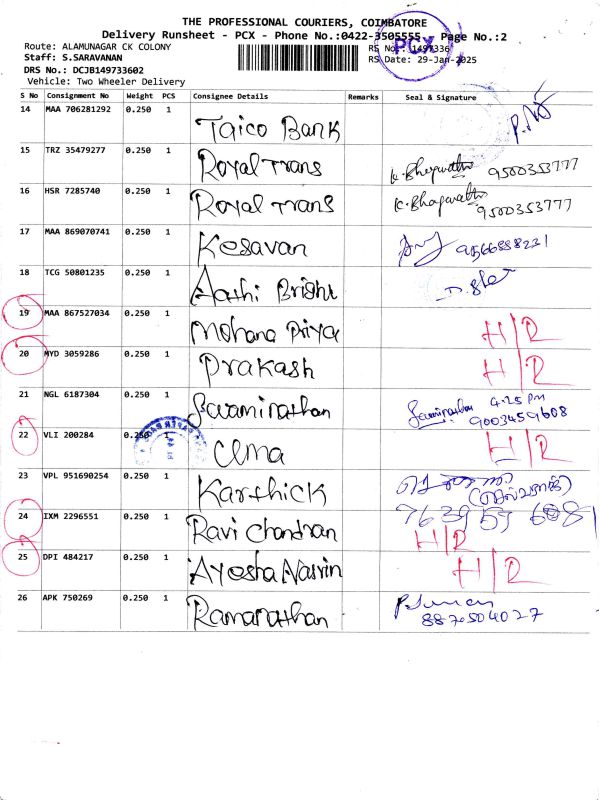 THE PROFESSIONAL COURIERS, COIMBATORE
Delivery Runsheet - PCX - Phone No.:0422-3505555, Page No.:2
Route: ALAMUNAGAR CK COLONY
RS No.: 1497336
PCX
Staff: S.SARAVANAN
RS Date: 29-Jan-2025
DRS No.: DCJB149733602
Vehicle: Two Wheeler Delivery
S No Consignment No Weight PCS Consignee Details Remarks Seal & Signature
14 MAA 706281292 0.250 1 Taico Bank
15 TRZ 35479277 0.250 1 Royal Trans K. Bhagavathi 9500353777
16 HSR 7285740 0.250 1 Royal Trans K. Bhagavathi 9500353777
17 MAA 869070741 0.250 1 Kesavan 9566888231
18 TCG 50801235 0.250 1 Aathi Bright
19 MAA 867527034 0.250 1 Mohana Priya H/R
20 MYD 3059286 0.250 1 Prakash H/R
21 NGL 6187304 0.250 1 Swaminathan Swaminathan 4.25 PM 9003459608
22 VLI 200284 0.250 1 Uma H/R
23 VPL 951690254 0.250 1 Karthick
24 IXM 2296551 0.250 1 Ravi Chandran H/R
25 DPI 484217 0.250 1 Ayesha Nasrin H/R
26 APK 750269 0.250 1 Ramanathan 8870504027